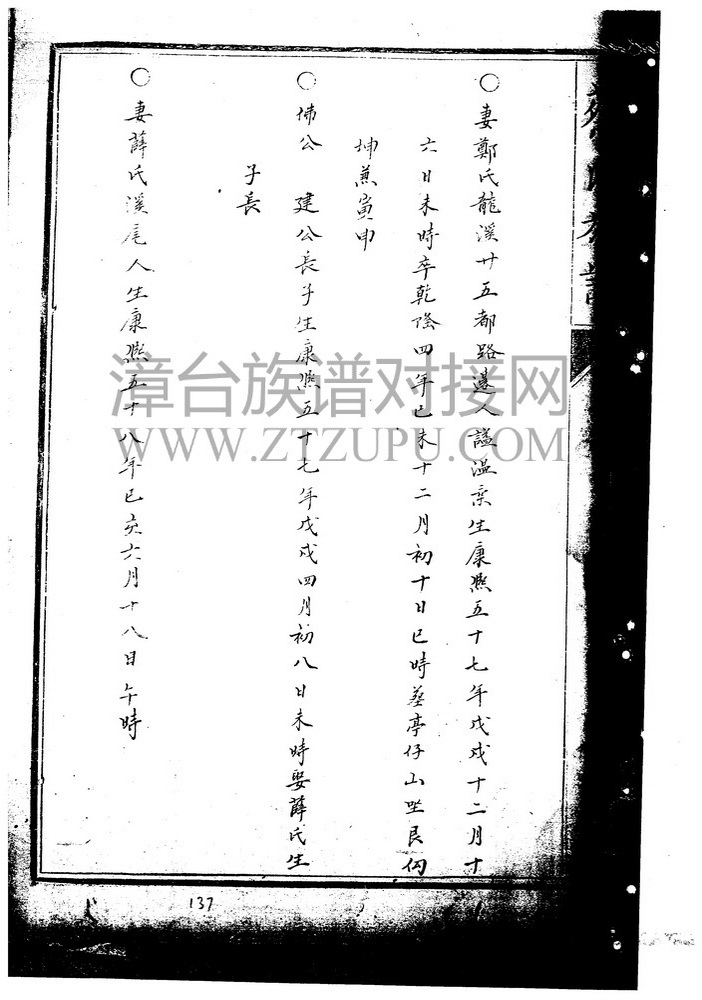 ○妻鄭氏龍溪廿五都路邊人謚溫柔生康熙五十七年戊戌十二月十
六日未時卒乾隆四年己未十二月初十日巳時葬亭仔山坐艮向
坤兼寅申
○ 公 建公長子生康熙五十七年戊戌四月初八日未時娶薛氏生
子長
○妻薛氏溪尾人生康熙五十八年己亥六月十八日午時
漳台族谱对接网
WWW.ZTZUPU.COM
137